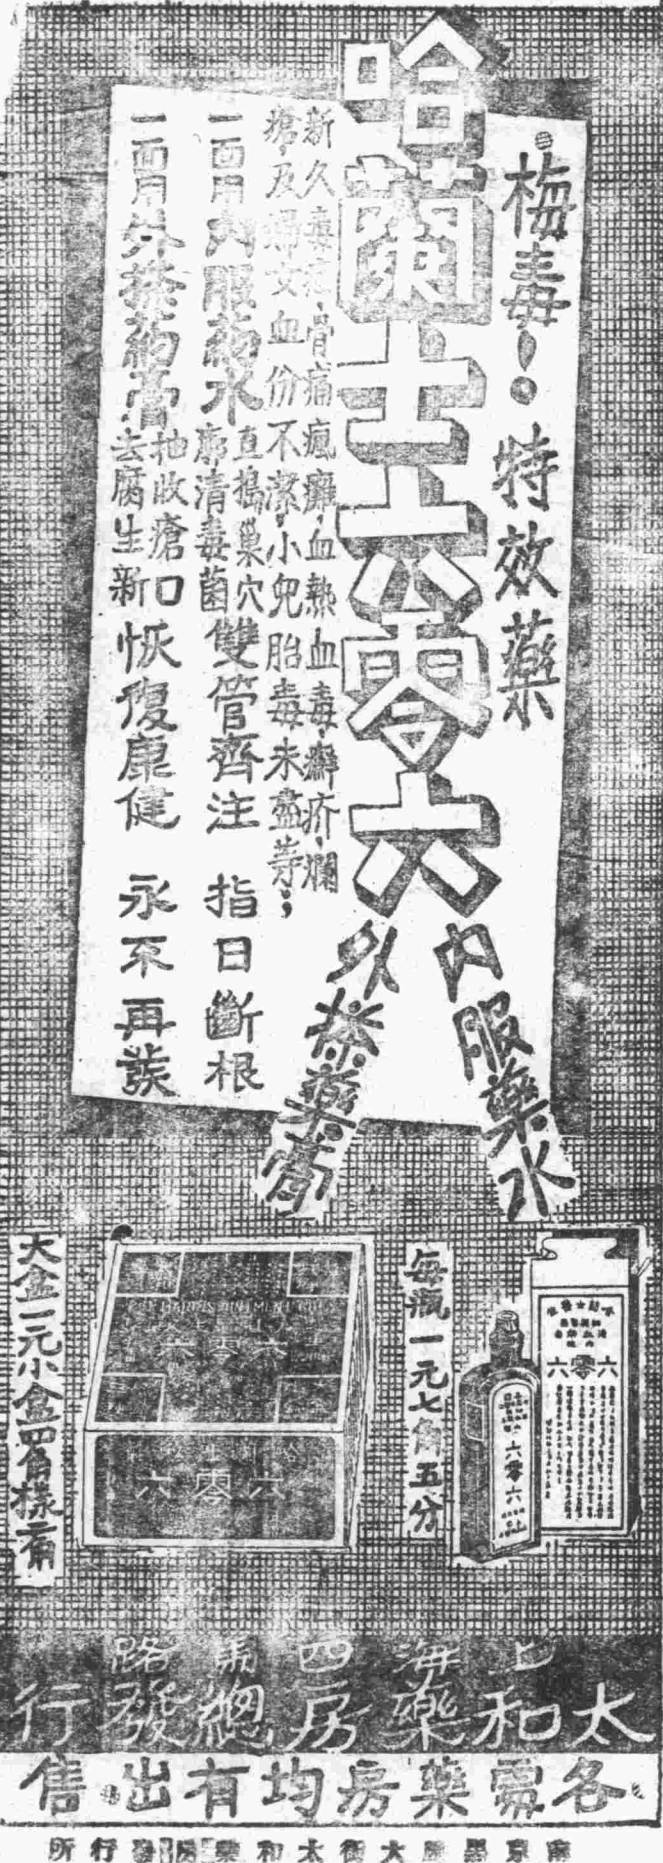 梅毒!。特效藥
哈蘭士六零六
內服藥水
外搽藥膏
新久毒瘡,骨痛瘋癱,血熱血毒,癬疥,爛
瘡,及婦女血份不潔,小兒胎毒未盡等;
一面用內服葯水直搗巢穴
廓清毒菌雙管齊注 指日斷根
一面用外搽葯膏抽收瘡口
去腐生新恢復康健 永不再發
每瓶一元七角五分
大盒一元小盒四角樣二角
六零六
六零六
六零六
六零六
上海四馬路
太和藥房總發行
各埠藥房均有出售
南京昇平大街太和藥房發行所